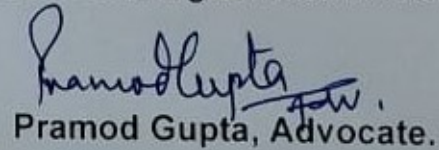 Pramod Gupta
Adv.
Pramod Gupta, Advocate.